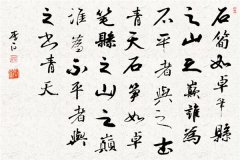 石筍如卓筆
之山之巔誰為
不平者與之書
青天石筍如卓
筆縣之山之巔
誰為不平者與
之書青天